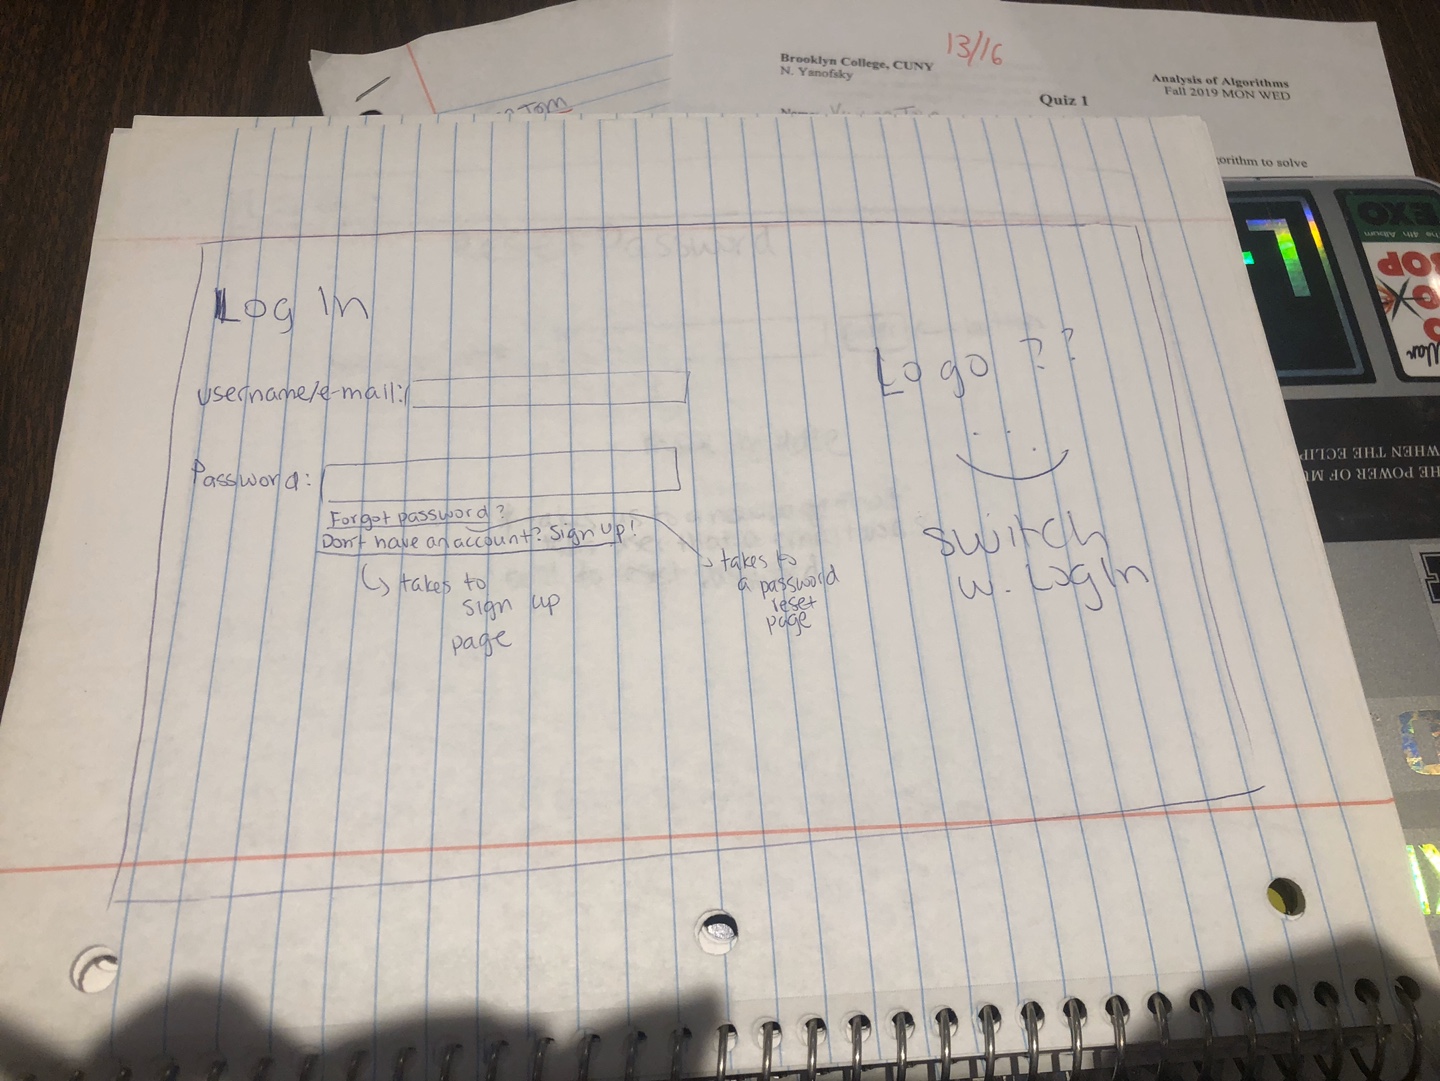 13/16
Brooklyn College, CUNY
N. Yanofsky
Analysis of Algorithms
Fall 2019 MON WED
Quiz 1
Tom
to solve
Log In
username/e-mail:
Password:
Forgot password?
Don't have an account? Sign up!
takes to
sign up
page
takes to
a password
reset
page
Logo ??
switch
w. LogIn
EXO
The 4th Album
WHEN THE
THE POWER OF